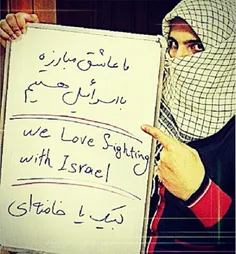 ما عاشق مبارزه
با اسرائیل هستیم
we Love fighting
with Israel
لبیک یا خامنه‌ای